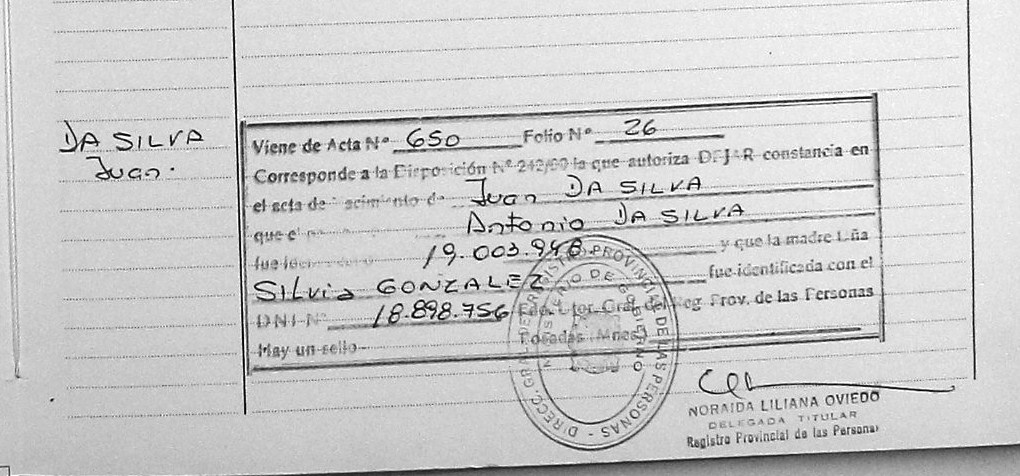 DA SILVA
Juan.
Viene de Acta Nº 650 Folio Nº 26
Corresponde a la Disposición Nº 242/90 la que autoriza DEJAR constancia en
el acta de nacimiento de Juan DA SILVA
que el Antonio DA SILVA
fue 19.003.948 y que la madre
Silvia GONZALEZ fue identificada con el
DNI Nº 18.898.756 Fdo. Gral. del Reg. Prov. de las Personas
Hay un sello Posadas Mnes.
DIRECC. GRAL. DE REGISTRO PROVINCIAL DE LAS PERSONAS
MINISTERIO DE GOBIERNO
NORAIDA LILIANA OVIEDO
DELEGADA TITULAR
Registro Provincial de las Personas